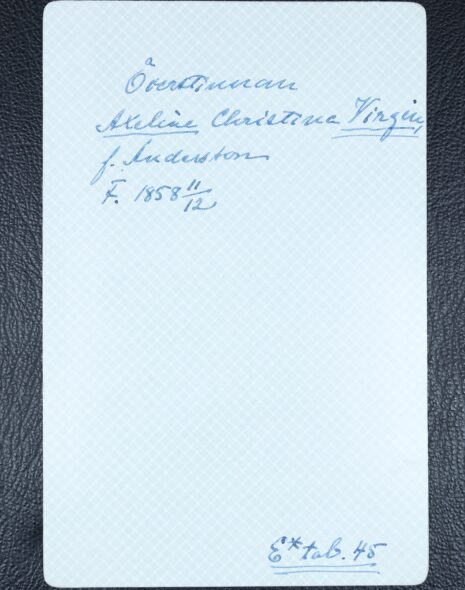 Överstinnan
Axeline Christina Virgin,
f. Andersson
F. 1858 11/12
E* tab. 45